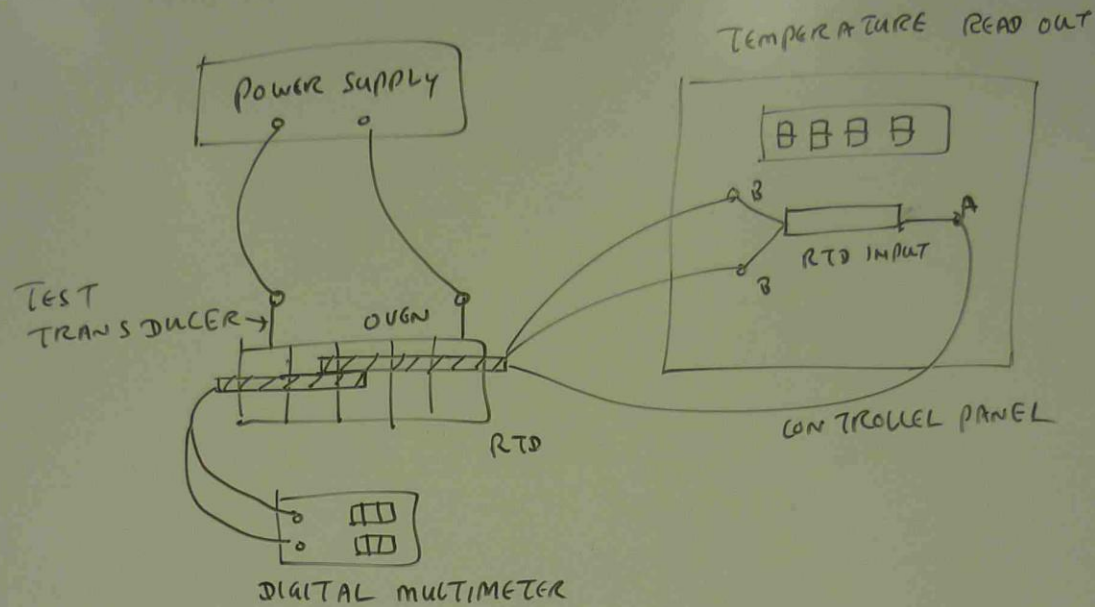 TEMPERATURE READ OUT
POWER SUPPLY
8888
B
A
RTD INPUT
B
TEST
TRANSDUCER
OVEN
CONTROLLEL PANEL
RTD
DIGITAL MULTIMETER